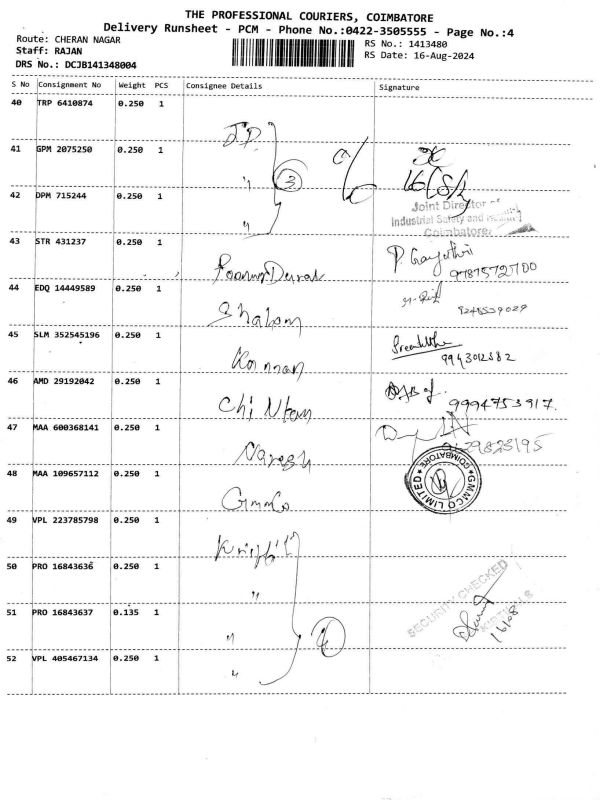 THE PROFESSIONAL COURIERS, COIMBATORE
Delivery Runsheet - PCM - Phone No.:0422-3505555 - Page No.:4
Route: CHERAN NAGAR
Staff: RAJAN
DRS No.: DCJB141348004
RS No.: 1413480
RS Date: 16-Aug-2024
S No Consignment No Weight PCS Consignee Details Signature
40 TRP 6410874 0.250 1
J.D.
41 GPM 2075250 0.250 1
" 3
42 DPM 715244 0.250 1
"
Joint Director of
Industrial Safety and
Coimbatore
43 STR 431237 0.250 1
P. Gayathri
9787572700
44 EDQ 14449589 0.250 1
Shalom
45 SLM 352545196 0.250 1
Kannan
9943012382
46 AMD 29192042 0.250 1
9994753917.
47 MAA 600368141 0.250 1
Naresh
48 MAA 109657112 0.250 1
Gmmco
GMMCO LIMITED
COIMBATORE
49 VPL 223785798 0.250 1
50 PRO 16843636 0.250 1
"
SECURITY CHECKED
51 PRO 16843637 0.135 1
"
4
16/08
52 VPL 405467134 0.250 1
"